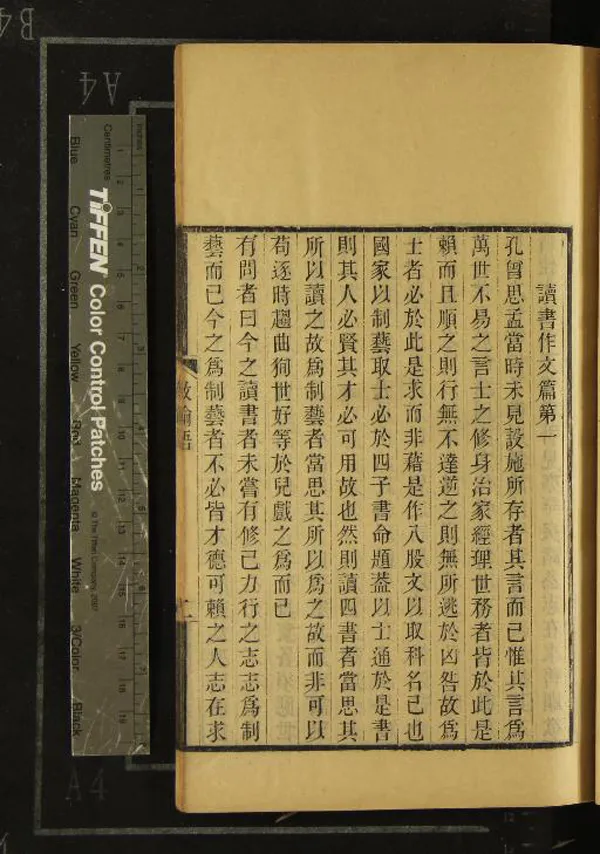 讀書作文篇第一
孔曾思孟當時未見設施所存者其言而已惟其言爲
萬世不易之言士之修身治家經理世務者皆於此是
賴而且順之則行無不達逆之則無所逃於凶咎故爲
士者必於此是求而非藉是作八股文以取科名已也
國家以制藝取士必於四子書命題葢以士通於是書
則其人必賢其才必可用故也然則讀四書者當思其
所以讀之故爲制藝者當思其所以爲之故而非可以
苟逐時趨曲狥世好等於兒戲之爲而已
有問者曰今之讀書者未嘗有修己力行之志志爲制
藝而已今之爲制藝者不必皆才德可賴之人志在求
B4
A4
TIFFEN Color Control Patches
© The Tiffen Company, 2007
Centimetres
Inches
Blue
Cyan
Green
Yellow
Red
Magenta
White
3/Color
Black
1
2
3
4
5
6
7
8
9
10
11
12
13
14
15
16
17
18
19
A4